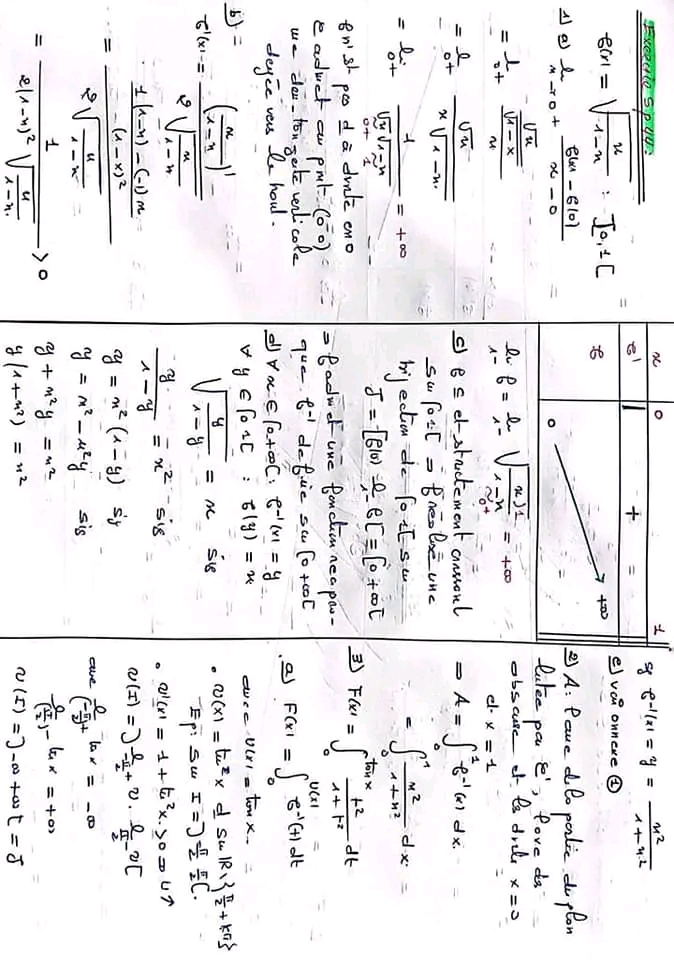 Exercice 5 p 44.
f(x) = √(x/(1-x)) ; [0,1[
1) a) lim x→0+ (f(x) - f(0))/(x - 0)
= lim 0+ (√x/√(1-x))/x
= lim 0+ √x/(x√(1-x))
= lim 0+ 1/(√x √(1-x)) = +∞
f n'est pas d à droite en 0
f admet au point (0,0)
une demi-tangente verticale
dirigée vers le haut.
b)
f'(x) = (x/(1-x))'/(2√(x/(1-x)))
= (1(1-x) - (-1)x)/(1-x)² / (2√(x/(1-x)))
= 1/(2(1-x)² √(x/(1-x))) > 0
x 0 1
f' | +
f 0 +∞
lim 1- f = lim 1- √(x/(1-x)) = +∞
c) f est c et strictement croissant
sur [0 1[ ⇒ f réalise une
bijection de [0 1[ sur
J = [f(0) lim 1- f[ = [0 +∞[
⇒ f admet une fonction récipro-
que f⁻¹ définie sur [0 +∞[
d) ∀ x ∈ [0 +∞[ ; f⁻¹(x) = y
∀ y ∈ [0 1[ ; f(y) = x
√(y/(1-y)) = x sig
y/(1-y) = x² sig
y = x²(1-y) sig
y = x² - x²y sig
y + x²y = x²
y(1+x²) = x²
sig f⁻¹(x) = y = x²/(1+x²)
e) voir annexe ①
2) A : l'aire de la partie du plan
limitée par ζ', l'axe des
abscisse et les droite x = 0
et x = 1
⇒ A = ∫₀¹ f⁻¹(x) dx.
= ∫₀¹ x²/(1+x²) dx
3) F(x) = ∫₀^(tan x) t²/(1+t²) dt
a) F(x) = ∫₀^(U(x)) f⁻¹(t) dt
avec U(x) = tan x.
• U(x) = tan x d sur ℝ\{π/2 + kπ}
Ep: sur I = ]-π/2 π/2[.
• U'(x) = 1 + tan² x > 0 ⇒ U ↗
U(I) = ]lim -π/2+ U . lim π/2- U[
avec lim (-π/2)+ tan x = -∞
lim (π/2)- tan x = +∞
U(I) = ]-∞ +∞[ = J